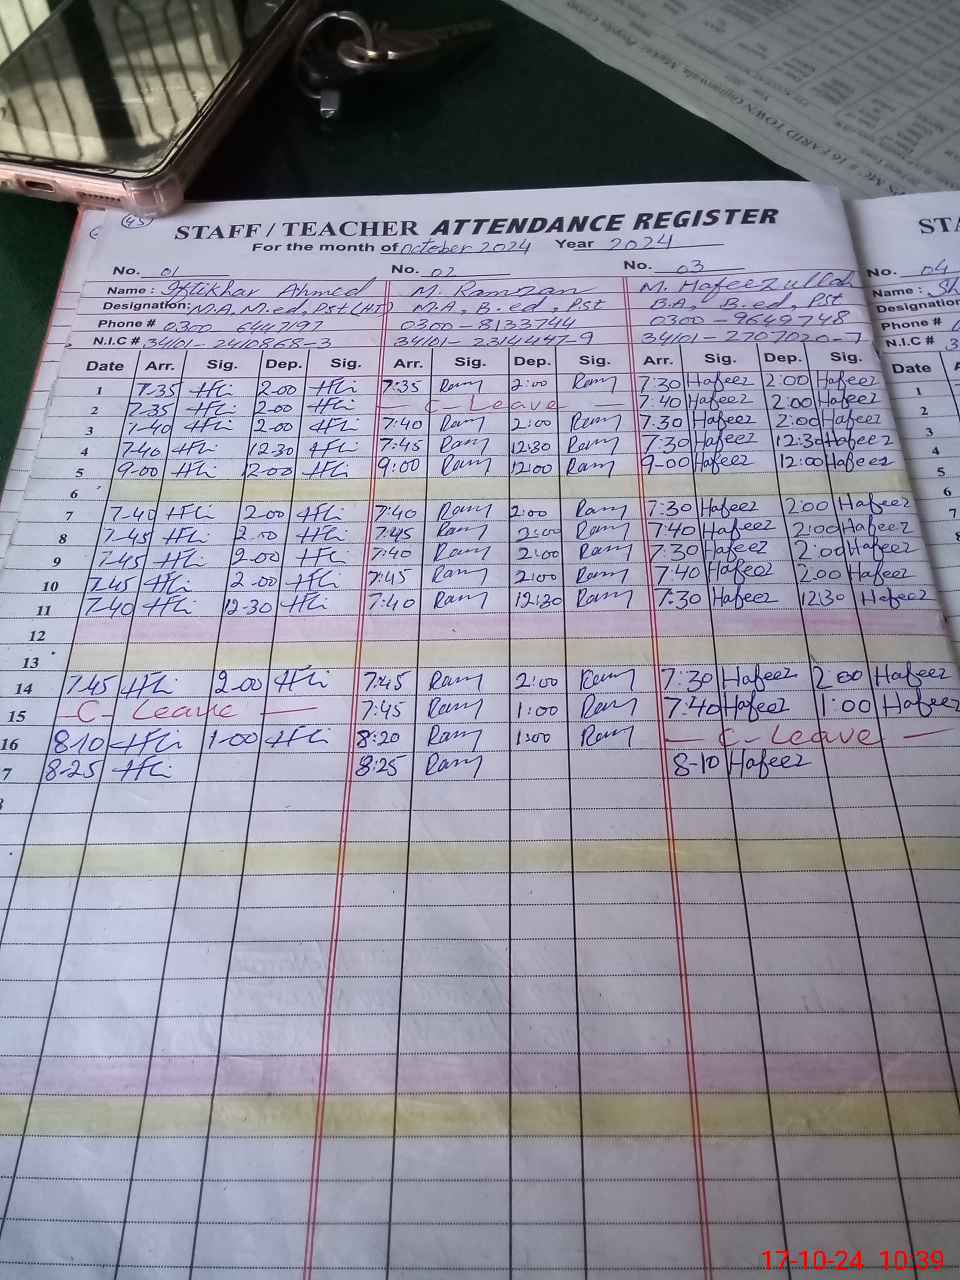 45
STAFF / TEACHER ATTENDANCE REGISTER
For the month of october 2024 Year 2024
No. 01 No. 02 No. 03
Name : Iftikhar Ahmed M. Ramzan M. Hafeezullah
Designation: M.A, M.ed, Pst (HT) M.A, B.ed, Pst B.A, B.ed, Pst
Phone # 0300 6447197 0300-8133744 0300-9649748
N.I.C # 34101-2410868-3 34101-2314447-9 34101-2707020-7
Date Arr. Sig. Dep. Sig. Arr. Sig. Dep. Sig. Arr. Sig. Dep. Sig.
1 7-35 Hfti 2-00 Hfti 7:35 Ramz 2:00 Ramz 7:30 Hafeez 2:00 Hafeez
2 7-35 Hfti 2-00 Hfti — C-Leave — 7:40 Hafeez 2:00 Hafeez
3 7-40 Hfti 2-00 Hfti 7:40 Ramz 2:00 Ramz 7.30 Hafeez 2:00 Hafeez
4 7-40 Hfti 12-30 Hfti 7:45 Ramz 12:30 Ramz 7:30 Hafeez 12:30 Hafeez
5 9-00 Hfti 12-00 Hfti 9:00 Ramz 12:00 Ramz 9-00 Hafeez 12:00 Hafeez
6
7 7-40 Hfti 2-00 Hfti 7:40 Ramz 2:00 Ramz 7:30 Hafeez 2:00 Hafeez
8 7-45 Hfti 2-00 Hfti 7:45 Ramz 2:00 Ramz 7:40 Hafeez 2:00 Hafeez
9 7-45 Hfti 2-00 Hfti 7:40 Ramz 2:00 Ramz 7:30 Hafeez 2:00 Hafeez
10 7-45 Hfti 2-00 Hfti 7:45 Ramz 2:00 Ramz 7:40 Hafeez 2:00 Hafeez
11 7-40 Hfti 12-30 Hfti 7:40 Ramz 12:30 Ramz 7:30 Hafeez 12:30 Hafeez
12
13
14 7-45 Hfti 2-00 Hfti 7:45 Ramz 2:00 Ramz 7:30 Hafeez 2:00 Hafeez
15 — C- Leave — 7:45 Ramz 1:00 Ramz 7:40 Hafeez 1:00 Hafeez
16 8-10 Hfti 1-00 Hfti 8:20 Ramz 1:00 Ramz — C-Leave —
7 8-25 Hfti 8:25 Ramz 8-10 Hafeez
STA
No. 04
Name : Sh
Designation
Phone #
N.I.C # 3
Date
1
2
3
4
5
6
7
17-10-24 10:39